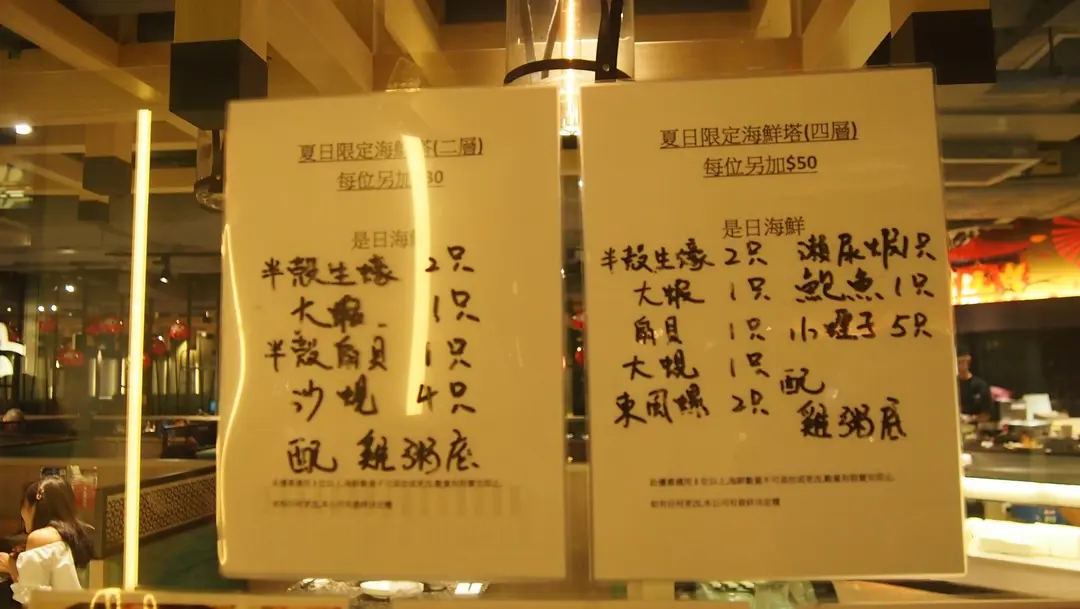 夏日限定海鮮塔(二層)
每位另加30
是日海鮮
半殼生蠔 2只
大蝦 1只
半殼扇貝 1只
沙蜆 4只
配 雞粥底
夏日限定海鮮塔(四層)
每位另加$50
是日海鮮
半殼生蠔 2只 瀨尿蝦1只
大蝦 1只 鮑魚 1只
扇貝 1只 小蟶子 5只
大蜆 1只
東風螺 2只
配
雞粥底
如有任何更改,本公司有最終決定權